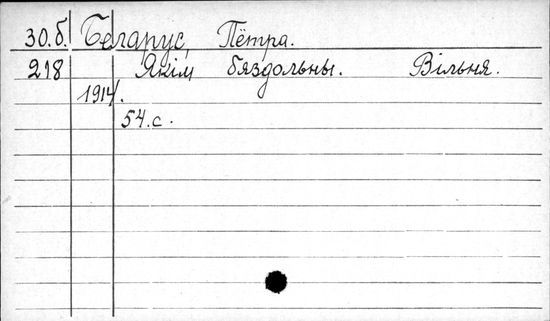 30.б. Беларус, Пётра.
218 Якім бяздольны. Вільня.
1914.
54.с.